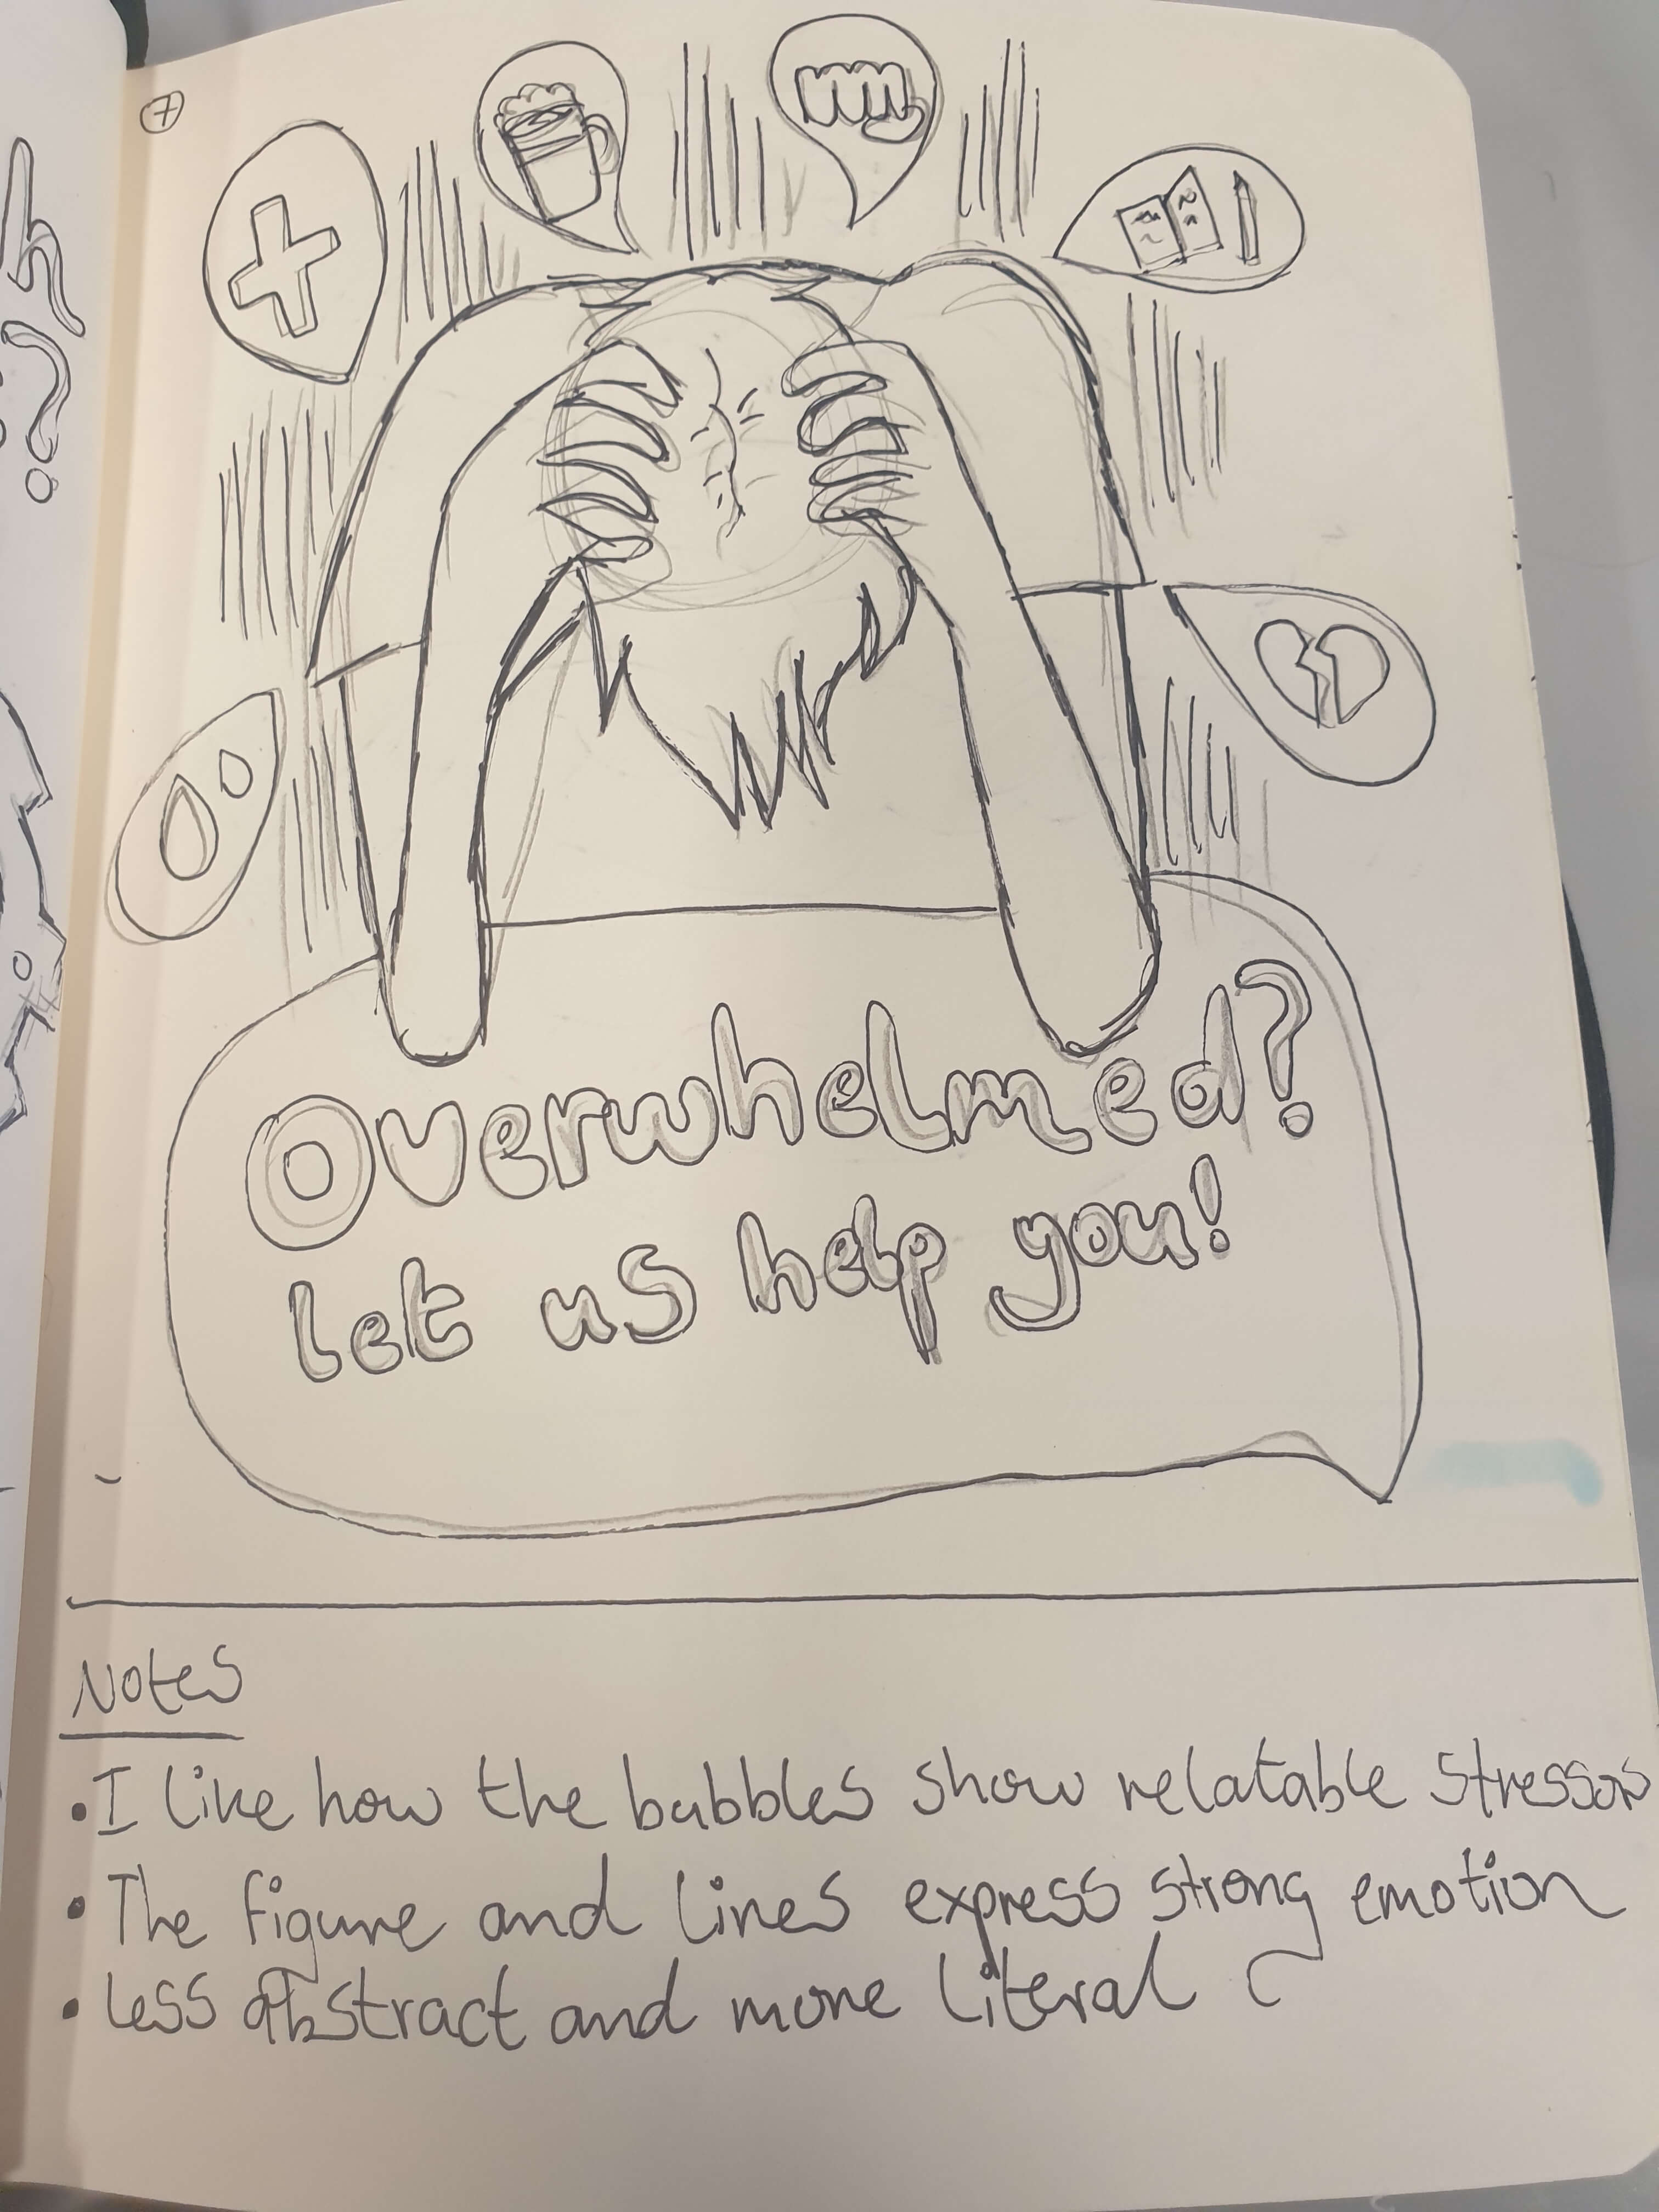 7
Overwhelmed?
let us help you!
Notes
• I like how the bubbles show relatable stressors
• The figure and lines express strong emotion
• less abstract and more literal